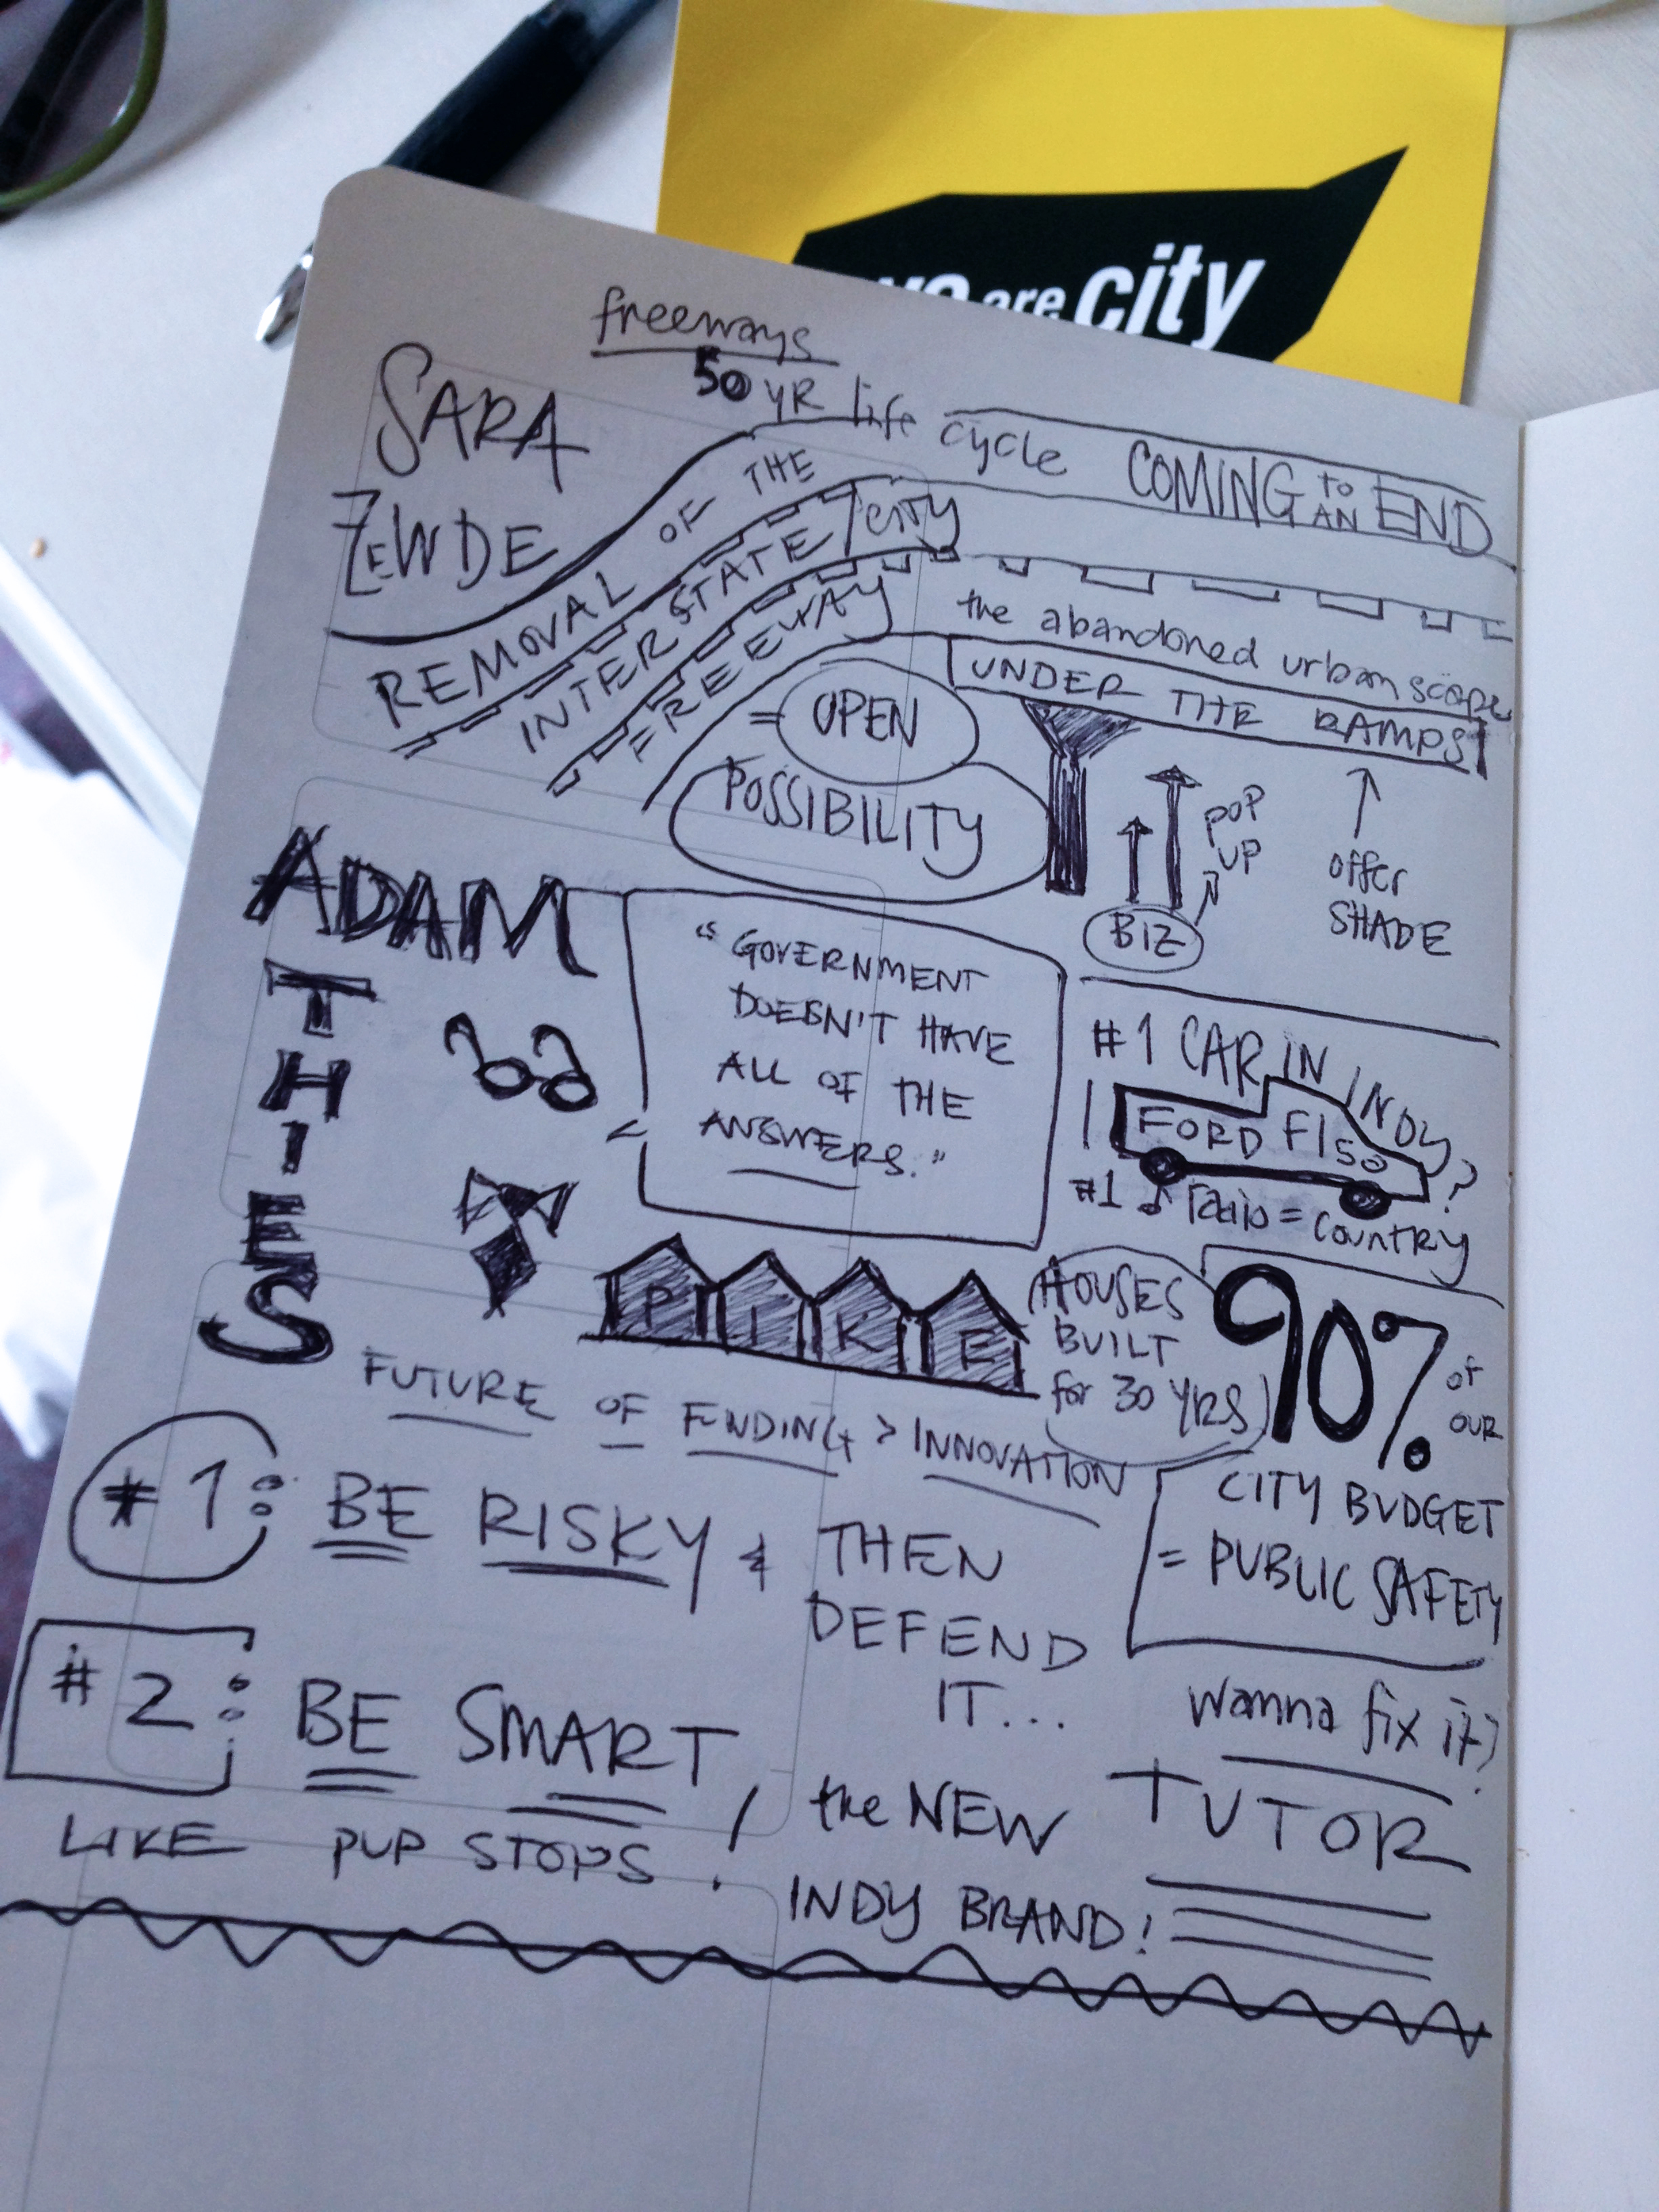 are city
freeways
50 YR life cycle COMING TO AN END
SARA
ZEWDE
REMOVAL OF THE
INTERSTATE / CITY
FREEWAY
= OPEN
POSSIBILITY
the abandoned urban scape
UNDER THE RAMPS
POP
UP
BIZ
offer
SHADE
ADAM
THIES
"GOVERNMENT
DOESN'T HAVE
ALL OF THE
ANSWERS."
#1 CAR IN INDY?
FORD F150
#1 ♪ radio = country
PIKE
HOUSES
BUILT
for 30 YRS
90% of
OUR
CITY BUDGET
= PUBLIC SAFETY
wanna fix it?
TUTOR
FUTURE OF FUNDING > INNOVATION
#1: BE RISKY & THEN
DEFEND
IT...
#2: BE SMART,
LIKE PUP STOPS!
the NEW
INDY BRAND!